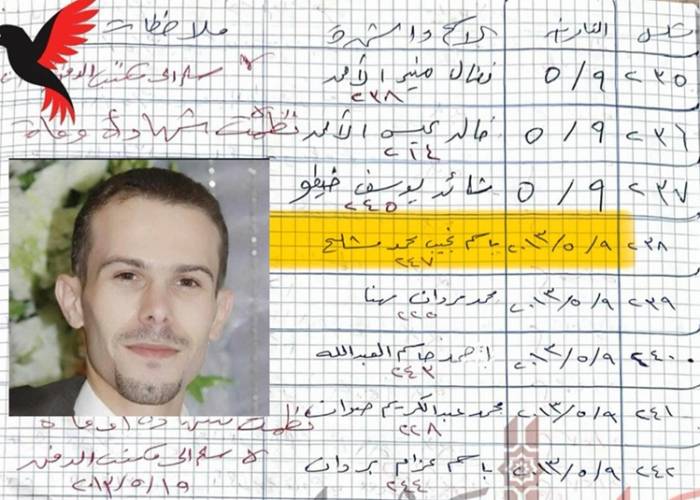 تسلسل التاريخ الاسم والشهرة ملاحظات
٢٣٥ ٥/٩ نضال منير الأحمد لا سلم الى مكتب الدفن
٢٣٨
٢٣٦ ٥/٩ خالد عيسى الأحمد نظمت شهادة وفاة
٢١٤
٢٣٧ ٥/٩ شائد يوسف خيطو
٢٤٥
٢٣٨ ٢٠١٣/٥/٩ باسم نجيب محمد مشلح
٢٤٧
٢٣٩ ٢٠١٣/٥/٩ محمد بردان مهنا
٢٢٥
٢٤٠ ٢٠١٣/٥/٩ احمد جاسم العبدالله
٢٤٣
٢٤١ ٢٠١٣/٥/٩ محمد عبدالكريم صوان نظمت شهادة وفاة
٢٢٨
٢٤٢ ٢٠١٣/٥/٩ باسم عزام بردان لا سلم الى مكتب الدفن
٢٤٤ ٢٠١٣/٥/١٩